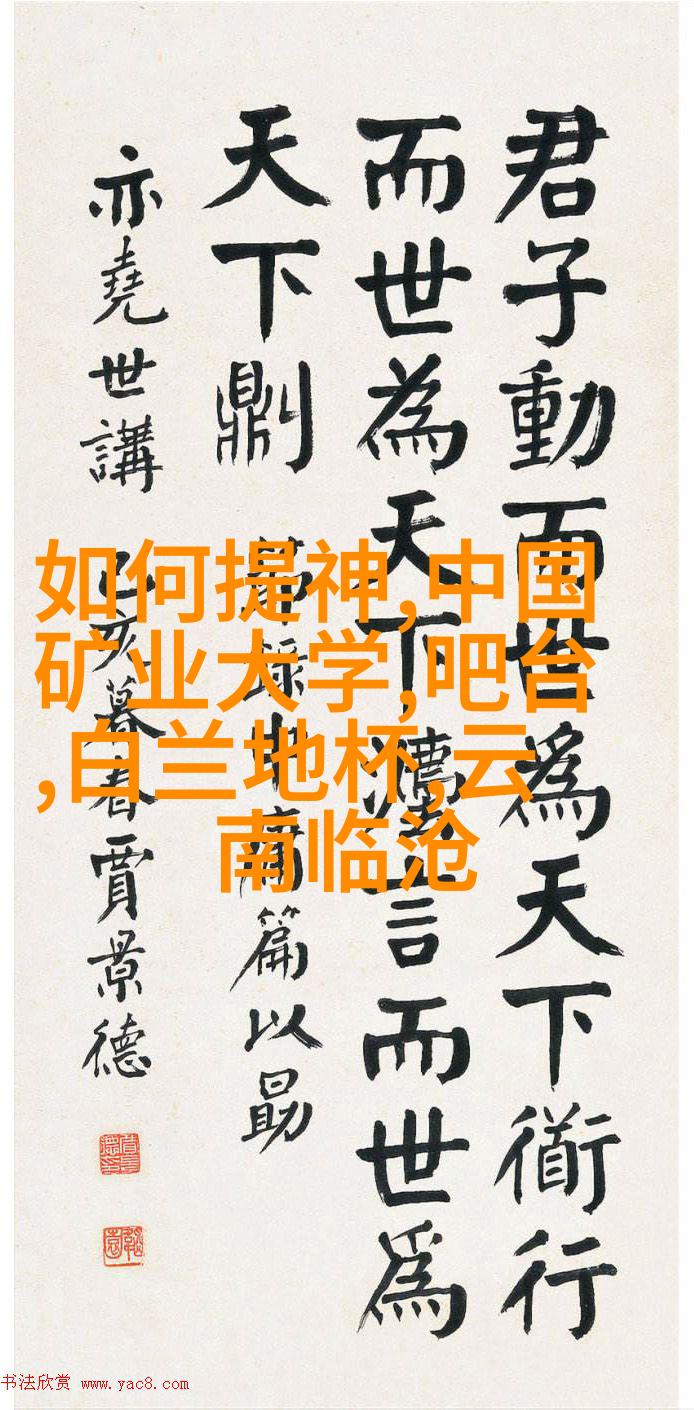 君子動而世為天下衜行
而世為天下灋言而世為
天下鼎刂 節錄中庸篇以勗
亦堯世講 己亥暮春賈景德
如何提神,中国
矿业大学,吧台
,白兰地杯,云
南临沧
书法欣赏 www.yac8.com